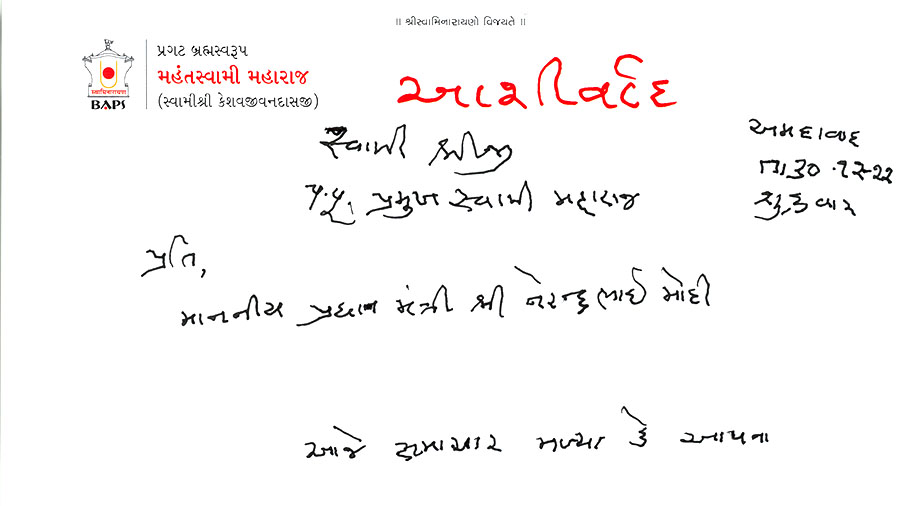 ॥ શ્રીસ્વામિનારાયણો વિજયતે ॥
પ્રગટ બ્રહ્મસ્વરૂપ
મહંતસ્વામી મહારાજ
(સ્વામીશ્રી કેશવજીવનદાસજી)
સ્વામિનારાયણ
BAPS
આશીર્વાદ
સ્વામી શ્રીજી
અમદાવાદ
તા ૩૦.૧૨-૨૨
પ.પૂ. પ્રમુખ સ્વામી મહારાજ
શુક્રવાર
પ્રતિ,
માનનીય પ્રધાન મંત્રી શ્રી નરેન્દ્રભાઈ મોદી
આજે સમાચાર મળ્યા કે આપના